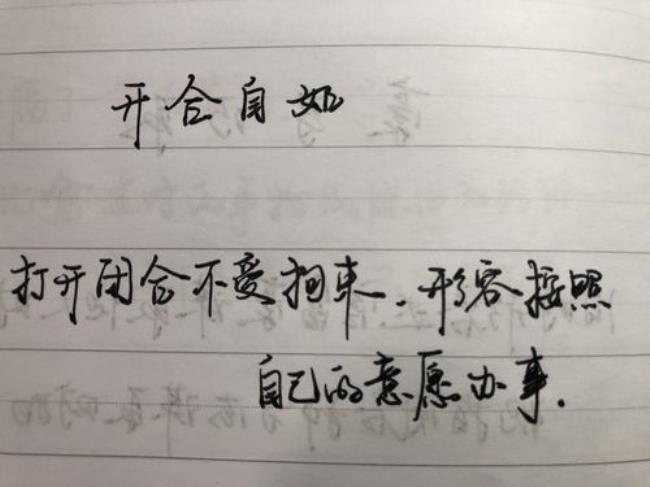 开合自如
打开闭合不受拘束.形容按照
自己的意愿办事.